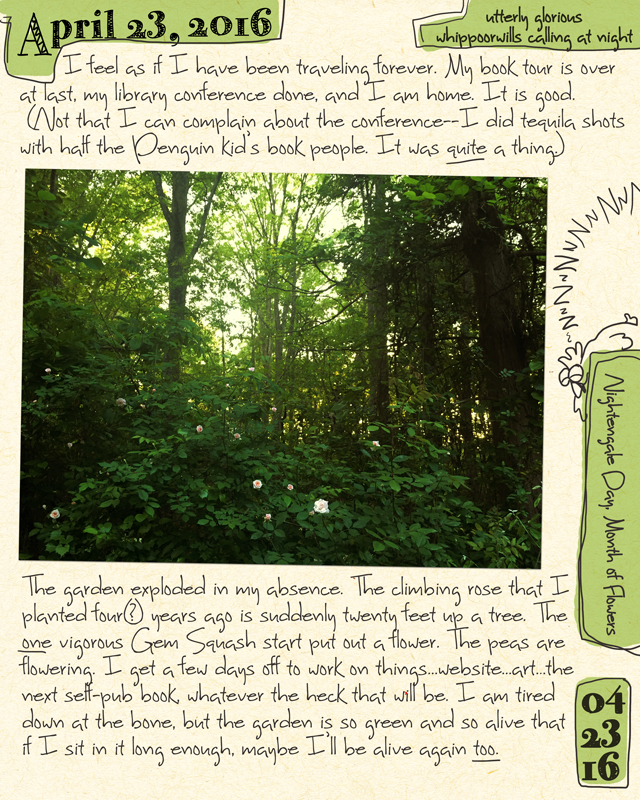 April 23, 2016
utterly glorious
whippoorwills calling at night
I feel as if I have been traveling forever. My book tour is over
at last, my library conference done, and I am home. It is good.
(Not that I can complain about the conference--I did tequila shots
with half the Penguin kid's book people. It was quite a thing.)
Nightengale Day, Month of Flowers
The garden exploded in my absence. The climbing rose that I
planted four(?) years ago is suddenly twenty feet up a tree. The
one vigorous Gem Squash start put out a flower. The peas are
flowering. I get a few days off to work on things...website...art...the
next self-pub book, whatever the heck that will be. I am tired
down at the bone, but the garden is so green and so alive that
if I sit in it long enough, maybe I'll be alive again too.
04
23
16